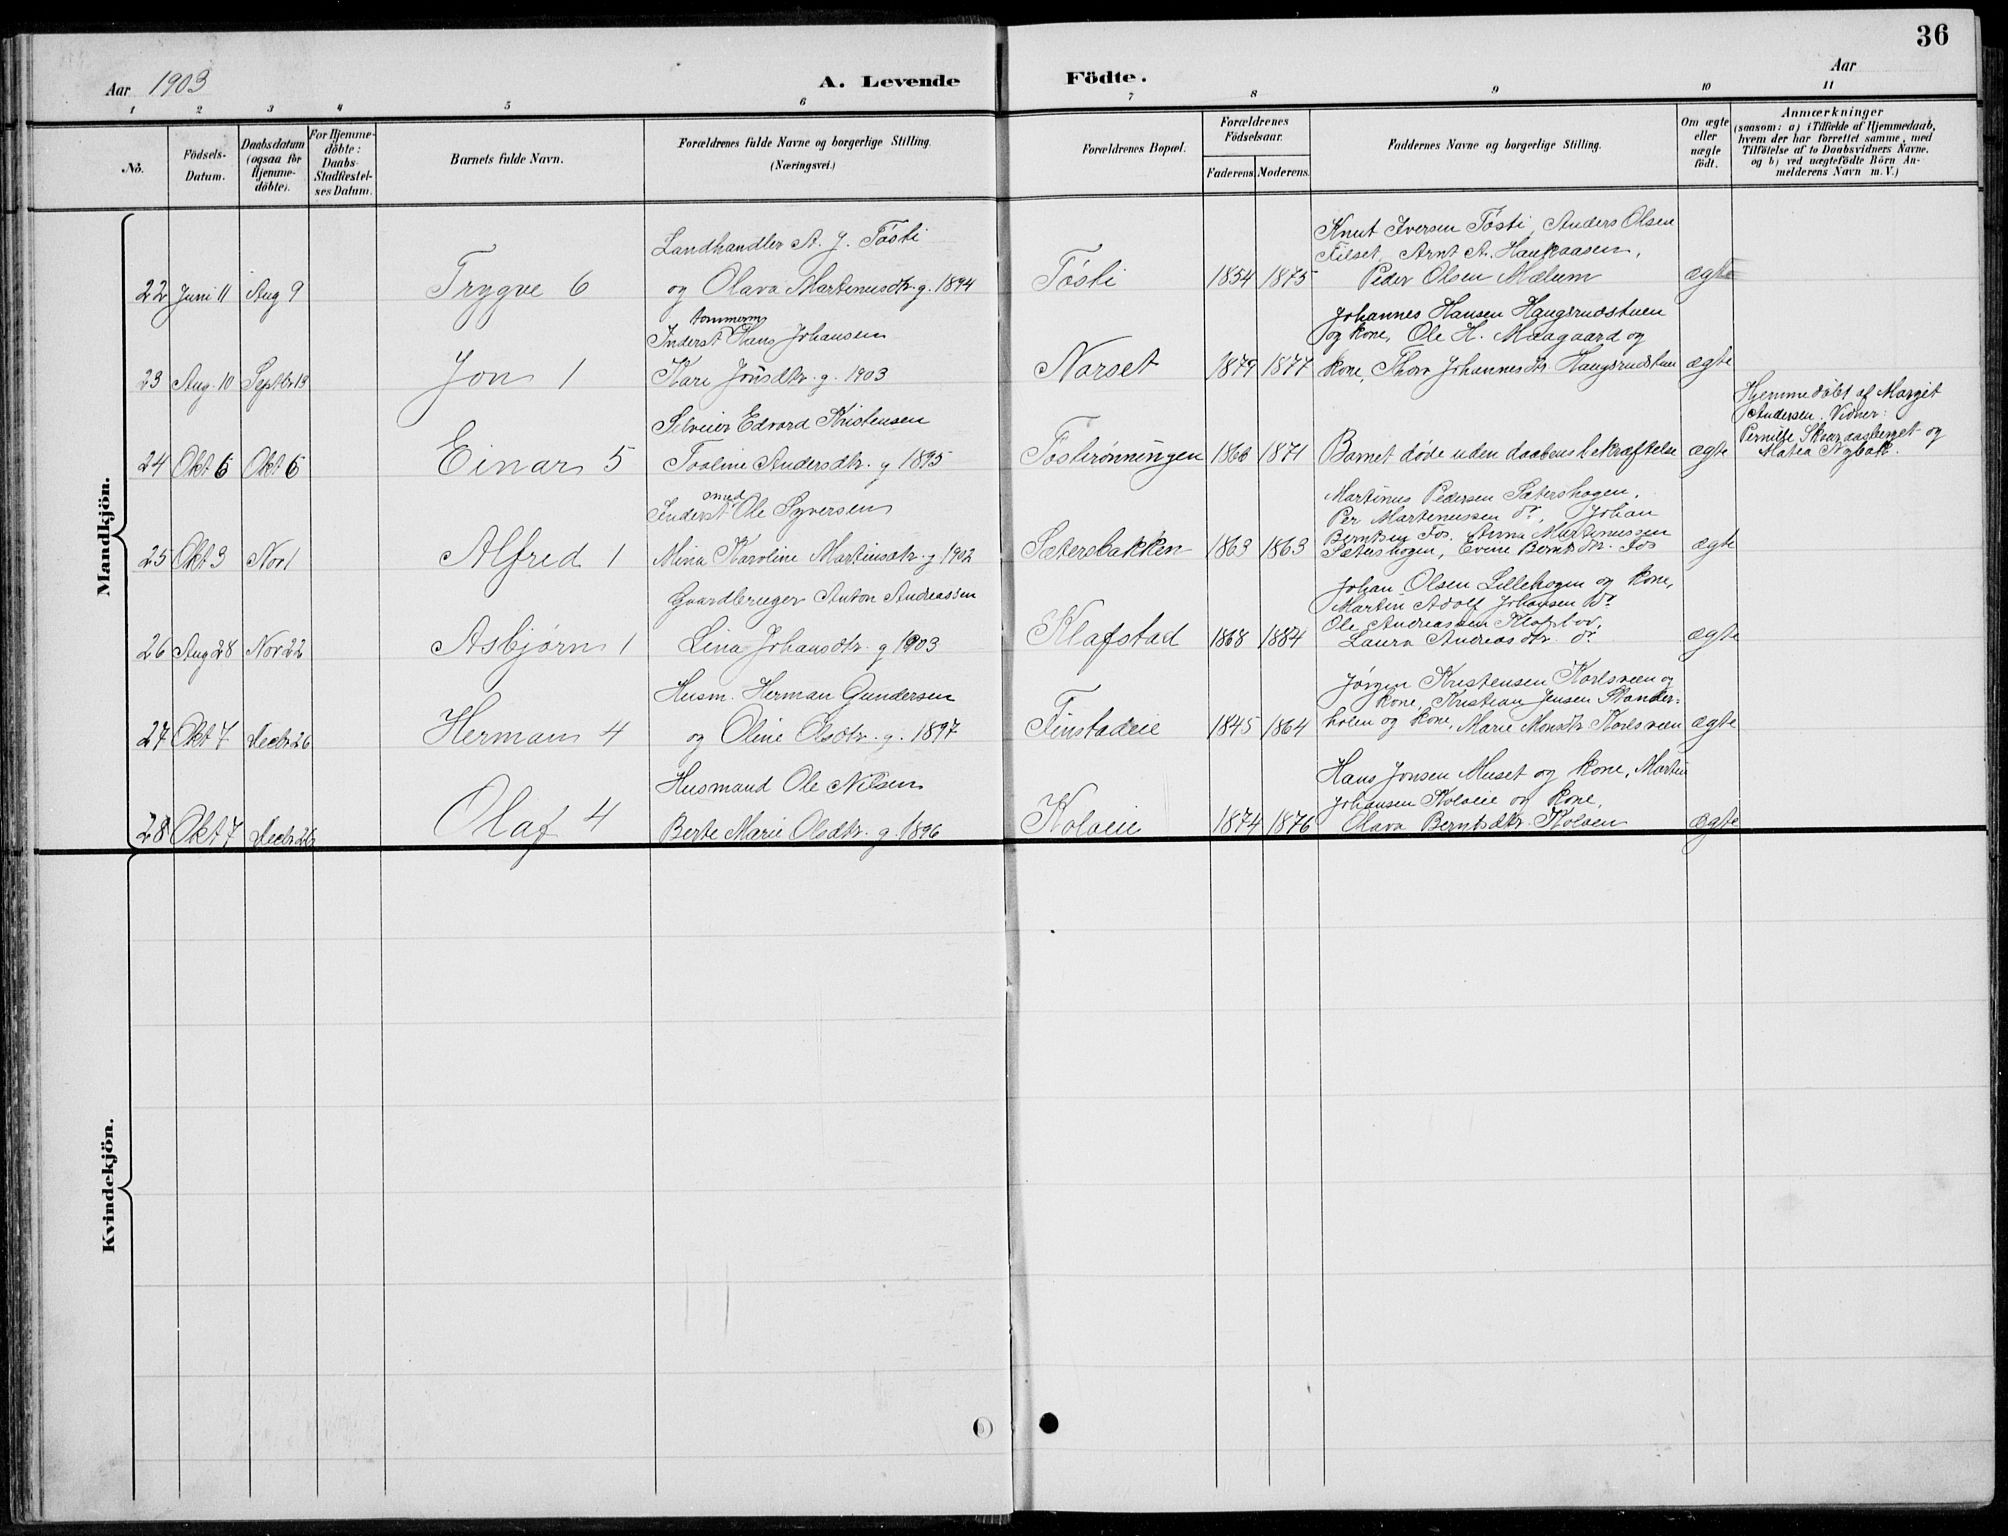 36
Aar 1903
A. Levende Födte.
Aar
1 2 3 4 5 6 7 8 9 10 11
No.
Födsels-
Datum.
Daabsdatum
(ogsaa for
Hjemme-
döbte).
For Hjemme-
döbte:
Daabs-
Stadfæstel-
ses Datum.
Barnets fulde Navn.
Forældrenes fulde Navne og borgerlige Stilling.
(Næringsvei.)
Forældrenes Bopæl.
Forældrenes
Födselsaar.
Faderens. Moderens.
Faddernes Navne og borgerlige Stilling.
Om ægte
eller
uægte
födt.
Anmærkninger
(saasom: a) i Tilfælde af Hjemmedaab,
hvem der har forrettet samme, med
Tilföielse af to Daabsvidners Navne,
og b) ved uægtefödte Börn An-
melderens Navn m. V.)
Mandkjön.
22 Juni 11 Aug 9 Trygve 6
Landhandler A. J. Tøsti
og Olava Martinusdtr. g. 1894
Tøsti 1854 1875
Knut Iversen Tøsti, Anders Olsen
Filset, Arnt A. Haukaasen,
Peder Olsen Mælum
ægte
23 Aug. 10 Septbr 13 Jon 1
tømmerm
Inderst Hans Johansen
Kari Jonsdtr. g. 1903
Narset 1879 1877
Johannes Hansen Haugsrudstuen
og kone, Ole H. Mæagaard og
kone, Thora Johannesdtr. Haugsrudstuen
ægte
24 Okt 6 Okt. 6 Einar 5
Selveier Edvard Kristensen
Toline Andersdtr. g 1895
Tøstirønningen 1866 1871
Barnet døde uden daabens bekræftelse
ægte
Hjemmedøbt af Margit
Andersen. Vidner:
Pernille Skaaraasberget og
Matea Nybak.
25 Okt 3 Nov 1 Alfred 1
smed
Inderst Ole Syversen
Mina Karoline Martinsdtr. g 1902
Sætersbakken 1863 1863
Martinus Pedersen Sætershagen,
Per Martinussen do, Johan
Berntsen Fos, Anna Martinussen
Sætershagen, Evine Berntsdtr. Fos
ægte
26 Aug 28 Nov 22 Asbjørn 1
Gaardbruger Anton Andreassen
Lina Johansdtr. g 1903
Klafstad 1868 1884
Johan Olsen Lillehagen og kone,
Martin Adolf Johansen do
Ole Andreassen
Laura Andreasdtr. do
ægte
27 Okt 7 Decbr 26 Herman 4
Husm. Herman Gundersen
og Oline Olsdtr. g. 1897
Finstadeie 1845 1864
Jørgen Kristensen Karlsveen og
kone, Kristian Jensen Slander-
holen og kone, Marie Monsdtr Karlsveen
ægte
28 Okt 7 Decbr 26 Olaf 4
Husmand Ole Nilsen
Berte Marie Olsdtr. g. 1896
Kolveie 1874 1876
Hans Jonsen Muset og kone, Martin
Johansen Kolveie og kone,
Olava Berntsdtr. Kolveie
ægte
Kvindekjön.